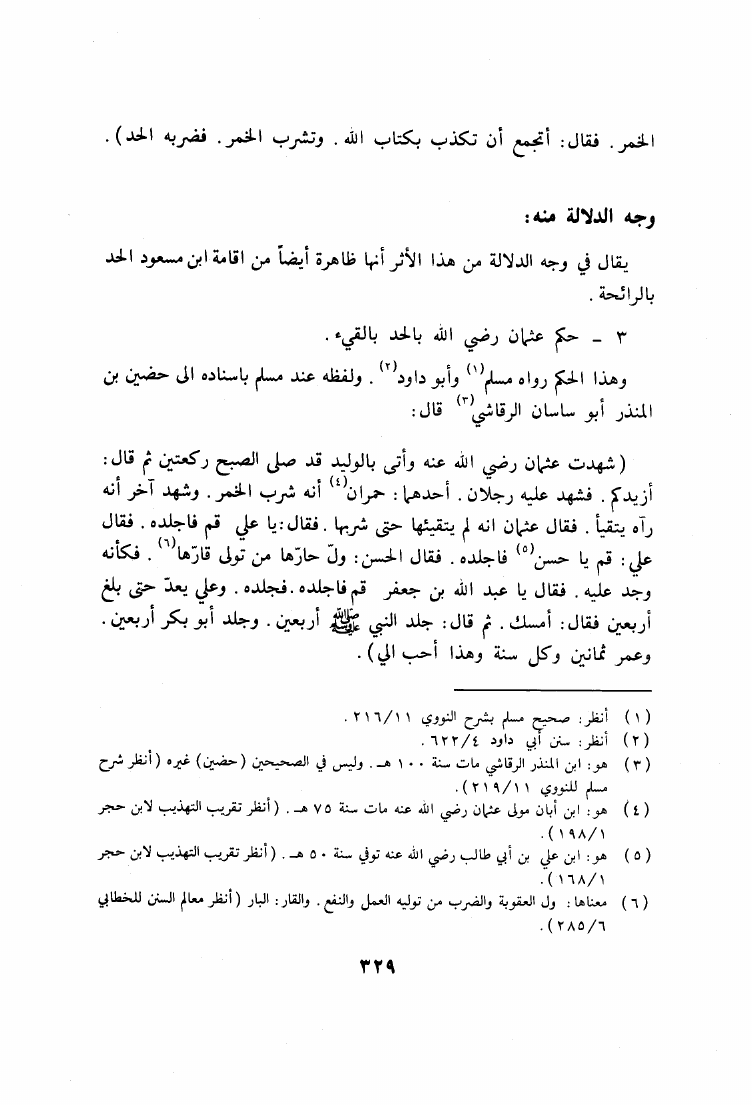 الخمر. فقال: أتجمع أن تكذب بكتاب الله. وتشرب الخمر. فضربه الحد).
وجه الدلالة منه:
يقال في وجه الدلالة من هذا الأثر أنها ظاهرة أيضاً من اقامة ابن مسعود الحد
بالرائحة.
٣ - حكم عثمان رضي الله بالحد بالقيء.
وهذا الحكم رواه مسلم(١) وأبو داود(٢). ولفظه عند مسلم باسناده الى حضين بن
المنذر أبو ساسان الرقاشي(٣) قال:
(شهدت عثمان رضي الله عنه وأتى بالوليد قد صلى الصبح ركعتين ثم قال:
أزيدكم. فشهد عليه رجلان. أحدهما: حمران(٤) أنه شرب الخمر. وشهد آخر أنه
رآه يتقيأ. فقال عثمان انه لم يتقيئها حتى شربها. فقال: يا علي قم فاجلده. فقال
علي: قم يا حسن(٥) فاجلده. فقال الحسن: ولّ حارّها من تولى قارّها(٦). فكأنه
وجد عليه. فقال يا عبد الله بن جعفر قم فاجلده. فجلده. وعلي يعدّ حتى بلغ
أربعين فقال: أمسك. ثم قال: جلد النبي ﷺ أربعين. وجلد أبو بكر أربعين.
وعمر ثمانين وكل سنة وهذا أحب الي).
(١) أنظر: صحيح مسلم بشرح النووي ٢١٦/١١.
(٢) أنظر: سنن أبي داود ٦٢٢/٤.
(٣) هو: ابن المنذر الرقاشي مات سنة ١٠٠ هـ. وليس في الصحيحين (حضين) غيره (أنظر شرح
مسلم للنووي ٢١٩/١١).
(٤) هو: ابن أبان مولى عثمان رضي الله عنه مات سنة ٧٥ هـ. (أنظر تقريب التهذيب لابن حجر
١٩٨/١).
(٥) هو: ابن علي بن أبي طالب رضي الله عنه توفي سنة ٥٠ هـ. (أنظر تقريب التهذيب لابن حجر
١٦٨/١).
(٦) معناها: ول العقوبة والضرب من توليه العمل والنفع. والقار: البار (أنظر معالم السنن للخطابي
٢٨٥/٦).
٣٢٩